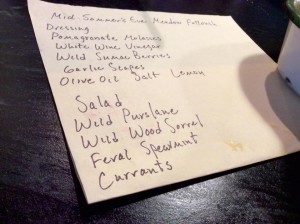 Mid Summer's Eve Meadow
Dressing
Pomagranate Molasses
White Wine Vinegar
Wild Sumac Berries
Garlic Scapes
Olive Oil Salt Lemon
Salad
Wild Purslane
Wild Wood Sorrel
Feral Spearmint
Currants